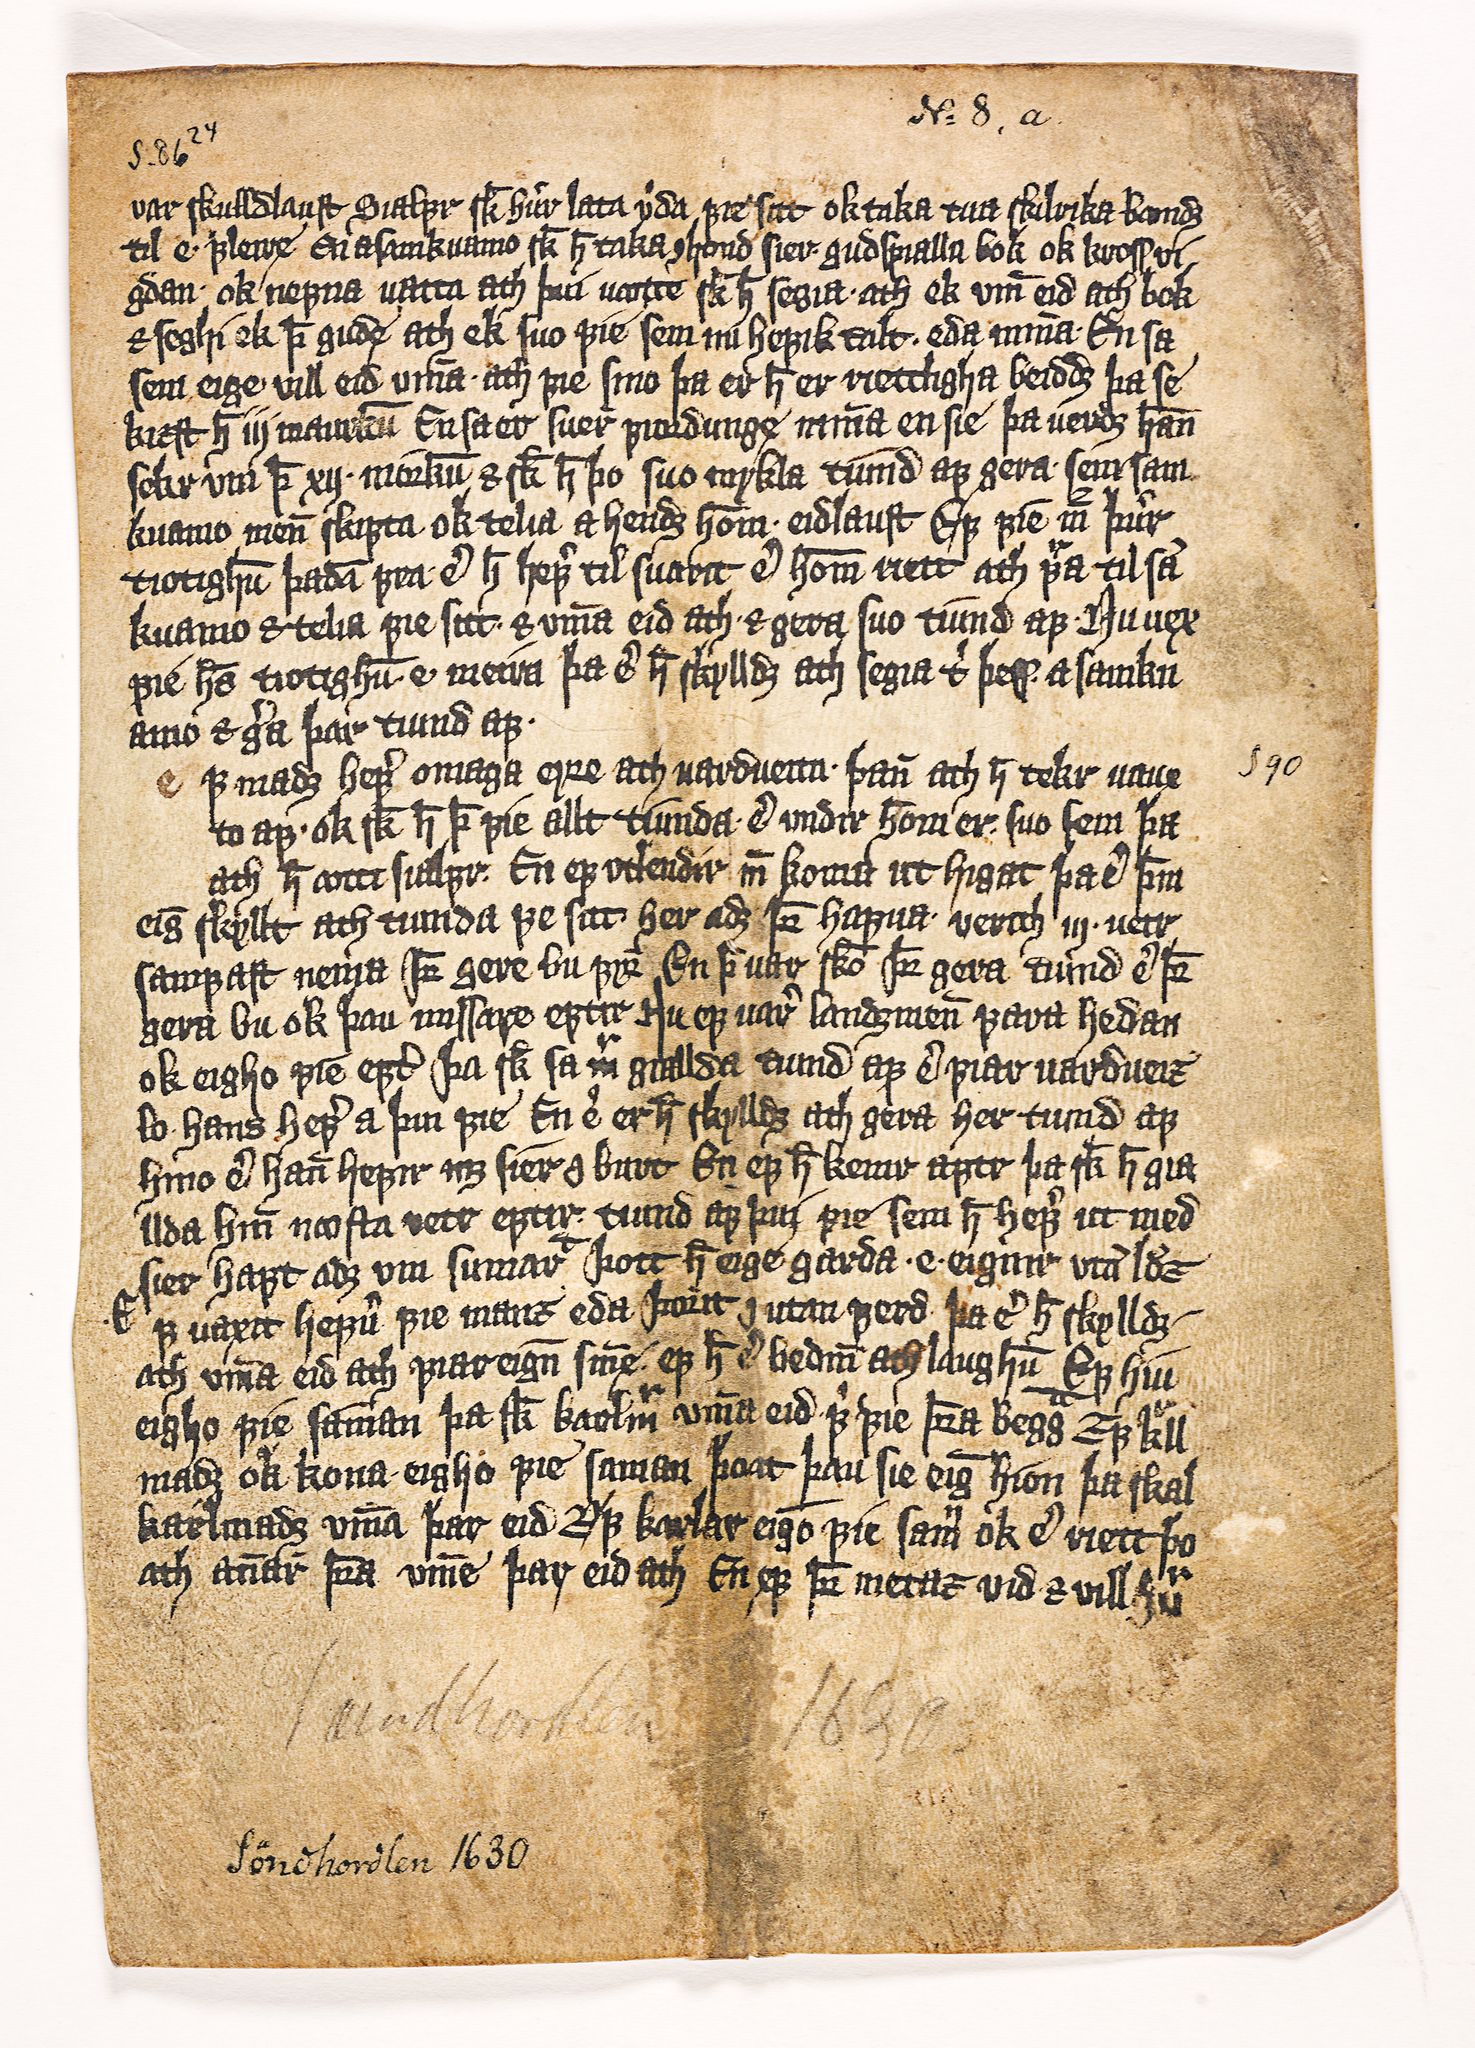 N: 8, a.
S. 86 24
var skulldlaust Sialfr sk̄ hūr lata v̓da fie sitt ok taka tua skilrika bondꝫ
til e. fleire En a samkuamo sk̄ h̄ taka j hond sier. gudspialla bok ok kross vi
gdan. ok nefna vatta ath þui vætte sk̄ h̄ segia. ath ek vīn eid ath bok
& seghi ek þ̄ gude ath ek suo fie sem nu hefik talt. eda mīna. En sa
sem eige vill eid vīna. ath fie sino þa er h̄ er rietthligha beiddꝫ þa se
kizst h̄ iij maurkū En sa er suer fiordunge mīna en sie þa verdꝫ han̄
sekr vm þ̄ xij. morkū & sk̄ h̄ þo suo mykla tiund af gera. sem sam
kuamo men̄ skipta ok telia a hendꝫ hōm. eidlaust Ef fie m̄ þūr
tiotighū þadā fra. e͛ h̄ hef͛ til suarit e͛ hōm riett ath fᷓa til sā
kuamo & telia fie sitt. & vīna eid ath. & gera suo tiund af. Nu vex
fie hs̄ tiotighū e. meira þa e͛ h̄ skylldꝫ ath segia t͛ þess. a samku
amo & g͛a þar tiund af.
S 90
e f madꝫ hef͛ omaga eyre ath varduetta. þan̄ ath h̄ tekr vaue
to af. ok sk̄ h̄ þ̄ fie allt tiunda. e͛ vndir hōm er. suo sem þa
ath h̄ ætti sialfr. En ef vtlendir m̄ koma ut higat þa e͛ þm̄
eiḡ skyllt ath tiunda fe sitt. her adꝫ þr̄ hafua. verith iij. vetr
samfast nema þr̄ gere bu fyr̄ En þ̄ var sko þr̄ gera tiund e͛ þr̄
gera bu ok þau missare eftir Nu ef var͛ landzmen̄ fara hedan
ok eigho fie eft͛ þa sk̄ sa m̄ giallda tiund af e͛ fiar vardueiꝫ
lo. hans hef͛ a þui fie En e͛ er h̄ skylldꝫ ath gera her tiund af
hino e͛ han̄ hefir mꝫ sier j burt En ef h̄ kemr aptr þa sk̄ h̄ gia
llda hm̄ næsta vetr eptir. tiund af þui fie sem h̄ hef͛ ut med
sier haft adꝫ vm sumar þott h̄ eige garda. e. eignir vtā ldꝫ
E f vaxit hef͛ fie manz eda þorit j utan ferd þa e͛ h̄ skylldꝫ
ath vīna eid ath fiar eign̄ sīne. ef h̄ e͛ bedīn ath laughū Ef hiu
eigho fie saman þa sk̄ karlm̄ vīna eid. f͛ fie þra begg Ef kᷓll
madꝫ ok kona eigho fie saman þoat þau sie eiḡ hion þa skal
karlmadꝫ vīna þar eid Ef karlar eigo fie sam̄ ok e͛ riett þo
ath an̄ar þra vīne þar eid ath En ef þr̄ metaz vid & vill hūr
Sundhordlen 1630
Söndhordlen 1630